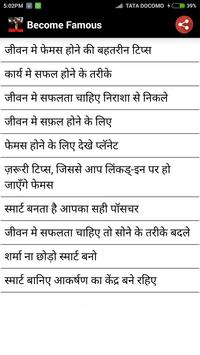 5:02PM
TATA DOCOMO
39%
Become Famous
जीवन मे फेमस होने की बहतरीन टिप्स
कार्य मे सफल होने के तरीके
जीवन मे सफलता चाहिए निराशा से निकले
जीवन मे सफ़ल होने के लिए
फेमस होने के लिए देखे प्लॅनेट
ज़रूरी टिप्स, जिससे आप लिंकड्-इन पर हो
जाएँगे फेमस
स्मार्ट बनता है आपका सही पॉसचर
जीवन मे सफलता चाहिए तो सोने के तरीके बदले
शर्मा ना छोड़ो स्मार्ट बनो
स्मार्ट बानिए आकर्षण का केंद्र बने रहिए